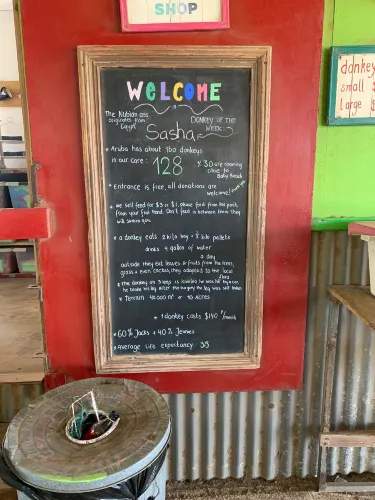 SHOP
WELCOME
The Nubian ass
originates from
Egypt
DONKEY OF THE
WEEK:
Sasha
Aruba has about 160 donkeys
in our care: 128
30 are roaming
close to
Baby Beach
Entrance is free, all donations are
welcome! thank you
we sell feed for $3 or $1, please feed from the
from your flat hand. Don't feed in between them. They
will
a donkey eats 2 kilo hay + kilo pellets
drinks 4 gallon of water
a day
outside they eat leaves & fruits from the trees,
grass & even cactus, they adapted to the local
flora
The donkey on 3 legs is
he broke his leg after the surgery the leg was still
Terrain 40.000 m² or 10 acres
1 donkey costs $140 /month
60% Jacks + 40% Jennies
Average life expectancy 35
donkey
small $
Large $